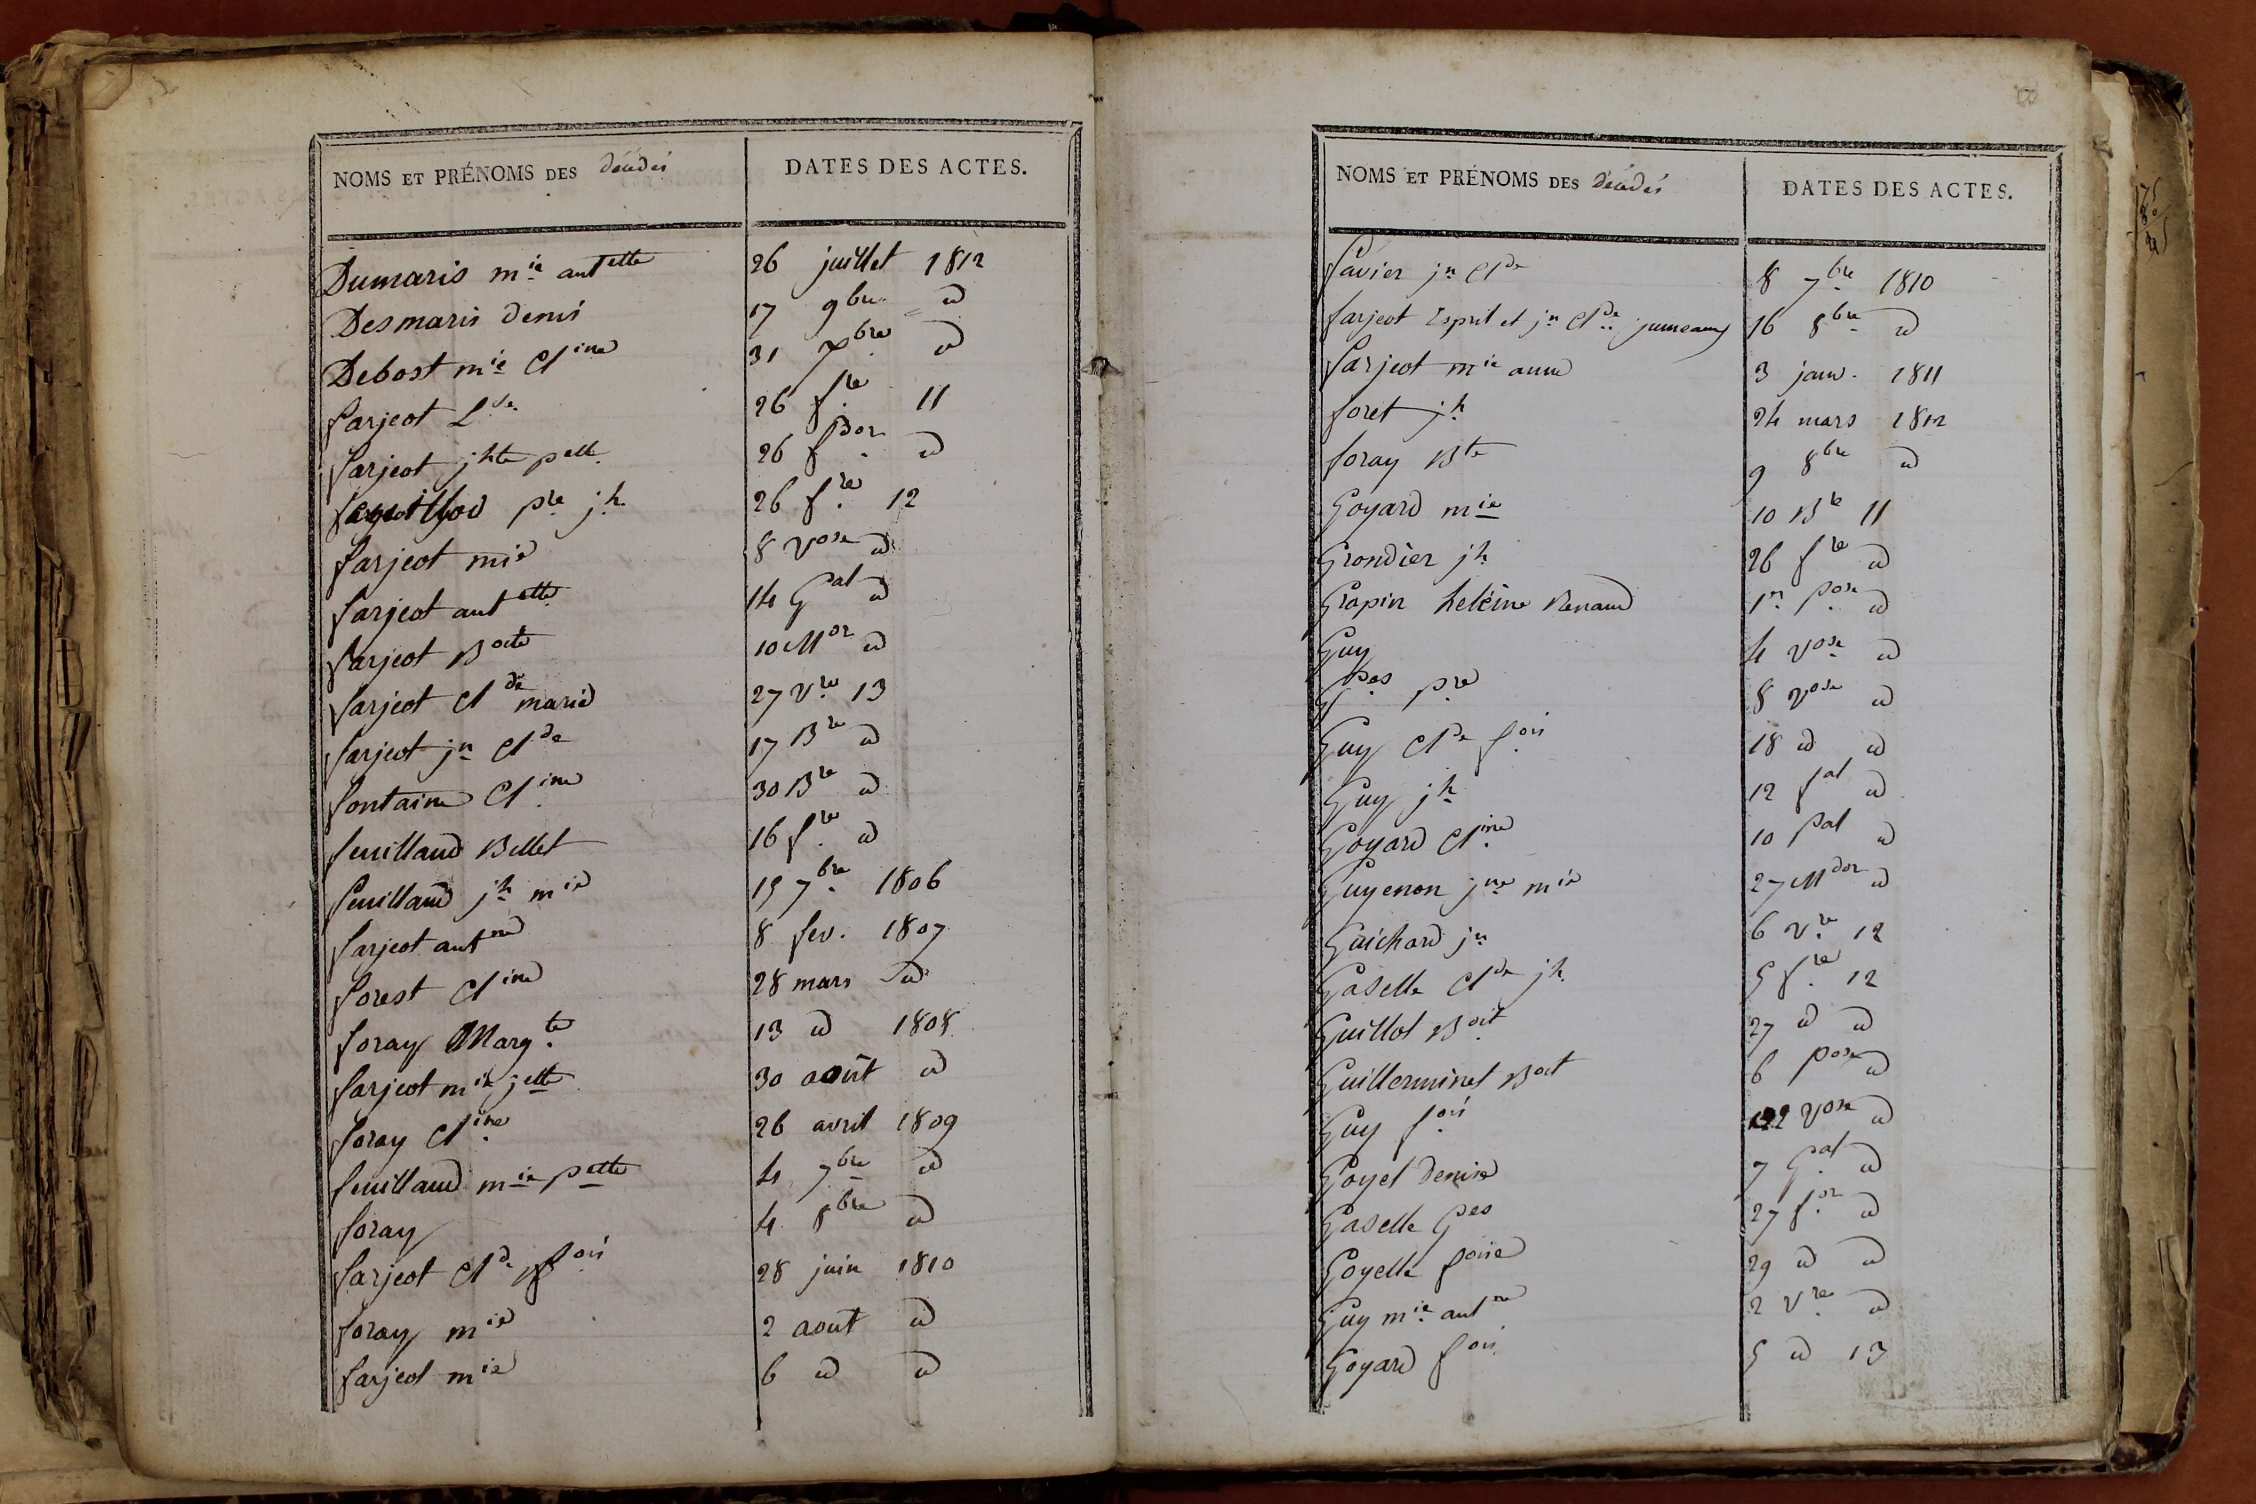 NOMS ET PRÉNOMS DES décédés DATES DES ACTES.
Dumaris mie antette 26 juillet 1812
Desmaris denis 17 9bre d
Debost mie Cline 31 Xbre d
farjeot Lse 26 fre 11
farjeot jhte pette 26 fdor d
pre jh 26 fre 12
farjeot mie 8 vose d
farjeot antette 14 Gal d
farjeot Boite 10 Mor d
farjeot Clde marie 27 Vre 13
farjeot jn Clde 17 Bre d
fontaine Cline 30 Bre d
feuillaud Billet 16 fre d
feuillaud jh mie 15 7bre 1806
farjeot antne 8 fev. 1807
forest Cline 28 mars d
foray Margte 13 d 1808
farjeot mie jette 30 août d
foray Cline 26 avril 1809
feuillaud mie pette 4 7bre d
foray 4 8bre d
farjeot Clde fois 28 juin 1810
foray mie 2 aout d
farjeot mie 6 d d
NOMS ET PRÉNOMS DES décédés DATES DES ACTES.
favier jn Clde 8 7bre 1810
farjeot Esprit et jn Clde jumeaux 16 8bre d
farjeot mie anne 3 janv. 1811
foret jh 24 mars 1812
foray Bte 9 8bre d
Goyard mie 10 Bre 11
Grondier jh 26 fre d
Grapin heléine Renaud 1er pose d
Guy 4 vose d
Gros pre 8 vose d
Guy Clde fois 18 d d
Guy jh 12 fal d
Goyard Cline 10 pal d
Guyenon jne mie 27 Mdor d
Guichard jn 6 Vre 12
Gaselle Clde jh 5 fre 12
Guillot Boit 27 d d
Guilleminet Boit 6 pose d
Guy fois 22 vose d
Goyet denise 7 Gal d
Gaselle Gres 27 for d
Goyelle foise 29 d d
Guy mie antne 2 Vre d
Goyard fois 5 d 13